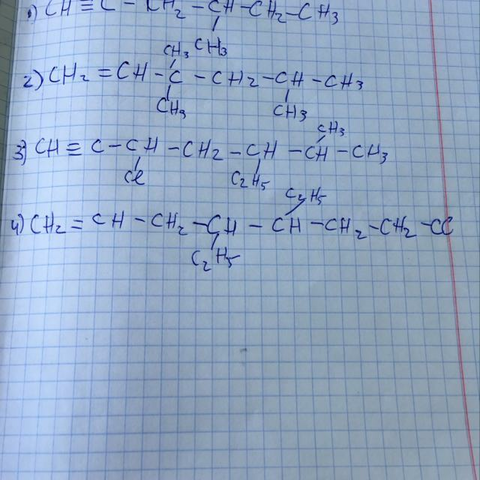 1) CH ≡ C - CH₂ - CH - CH₂ - CH₃
CH₃
CH₃
2) CH₂ = CH - C - CH₂ - CH - CH₃
CH₃ CH₃
CH₃
3) CH ≡ C - CH - CH₂ - CH - CH - CH₃
Cl C₂H₅
C₂H₅
4) CH₂ = CH - CH₂ - CH - CH - CH₂ - CH₂ - Cl
C₂H₅